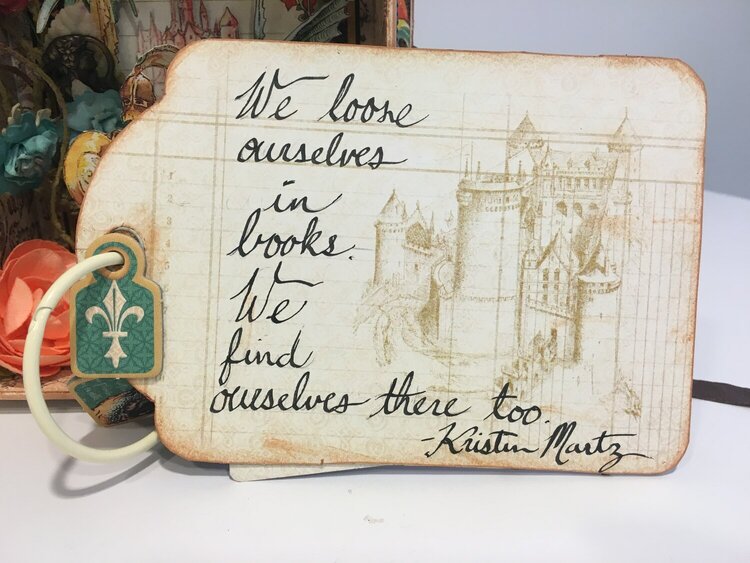 We loose
ourselves
in
books.
We
find
ourselves there too.
-Kristin Martz